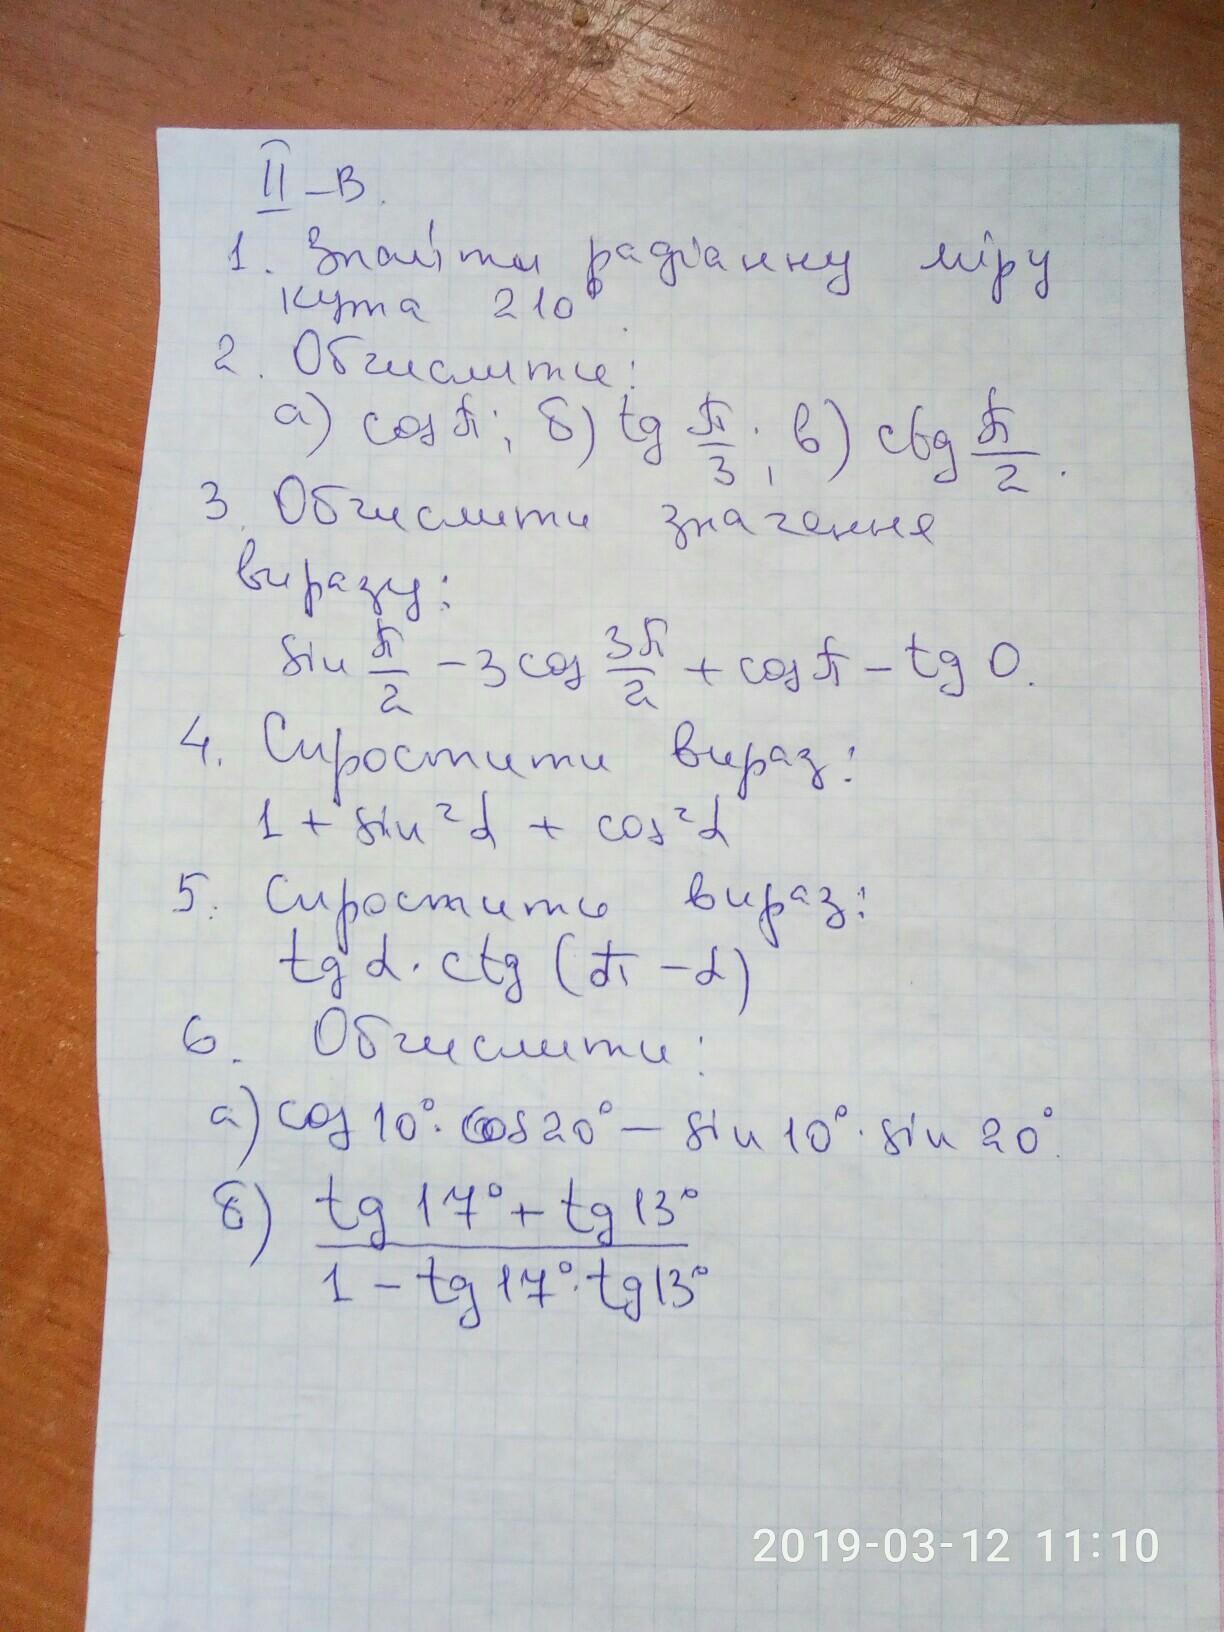 II – В.
1. Знайти радіанну міру
кута 210°.
2. Обчислити:
а) cos π; б) tg π/3; в) ctg π/2.
3. Обчислити значення
виразу:
sin π/2 – 3 cos 3π/2 + cos π – tg 0.
4. Спростити вираз:
1 + sin²α + cos²α
5. Спростить вираз:
tg α · ctg (π – α)
6. Обчислити:
а) cos 10° · cos 20° – sin 10° · sin 20°.
б) (tg 17° + tg 13°) / (1 – tg 17° · tg 13°)
2019-03-12 11:10